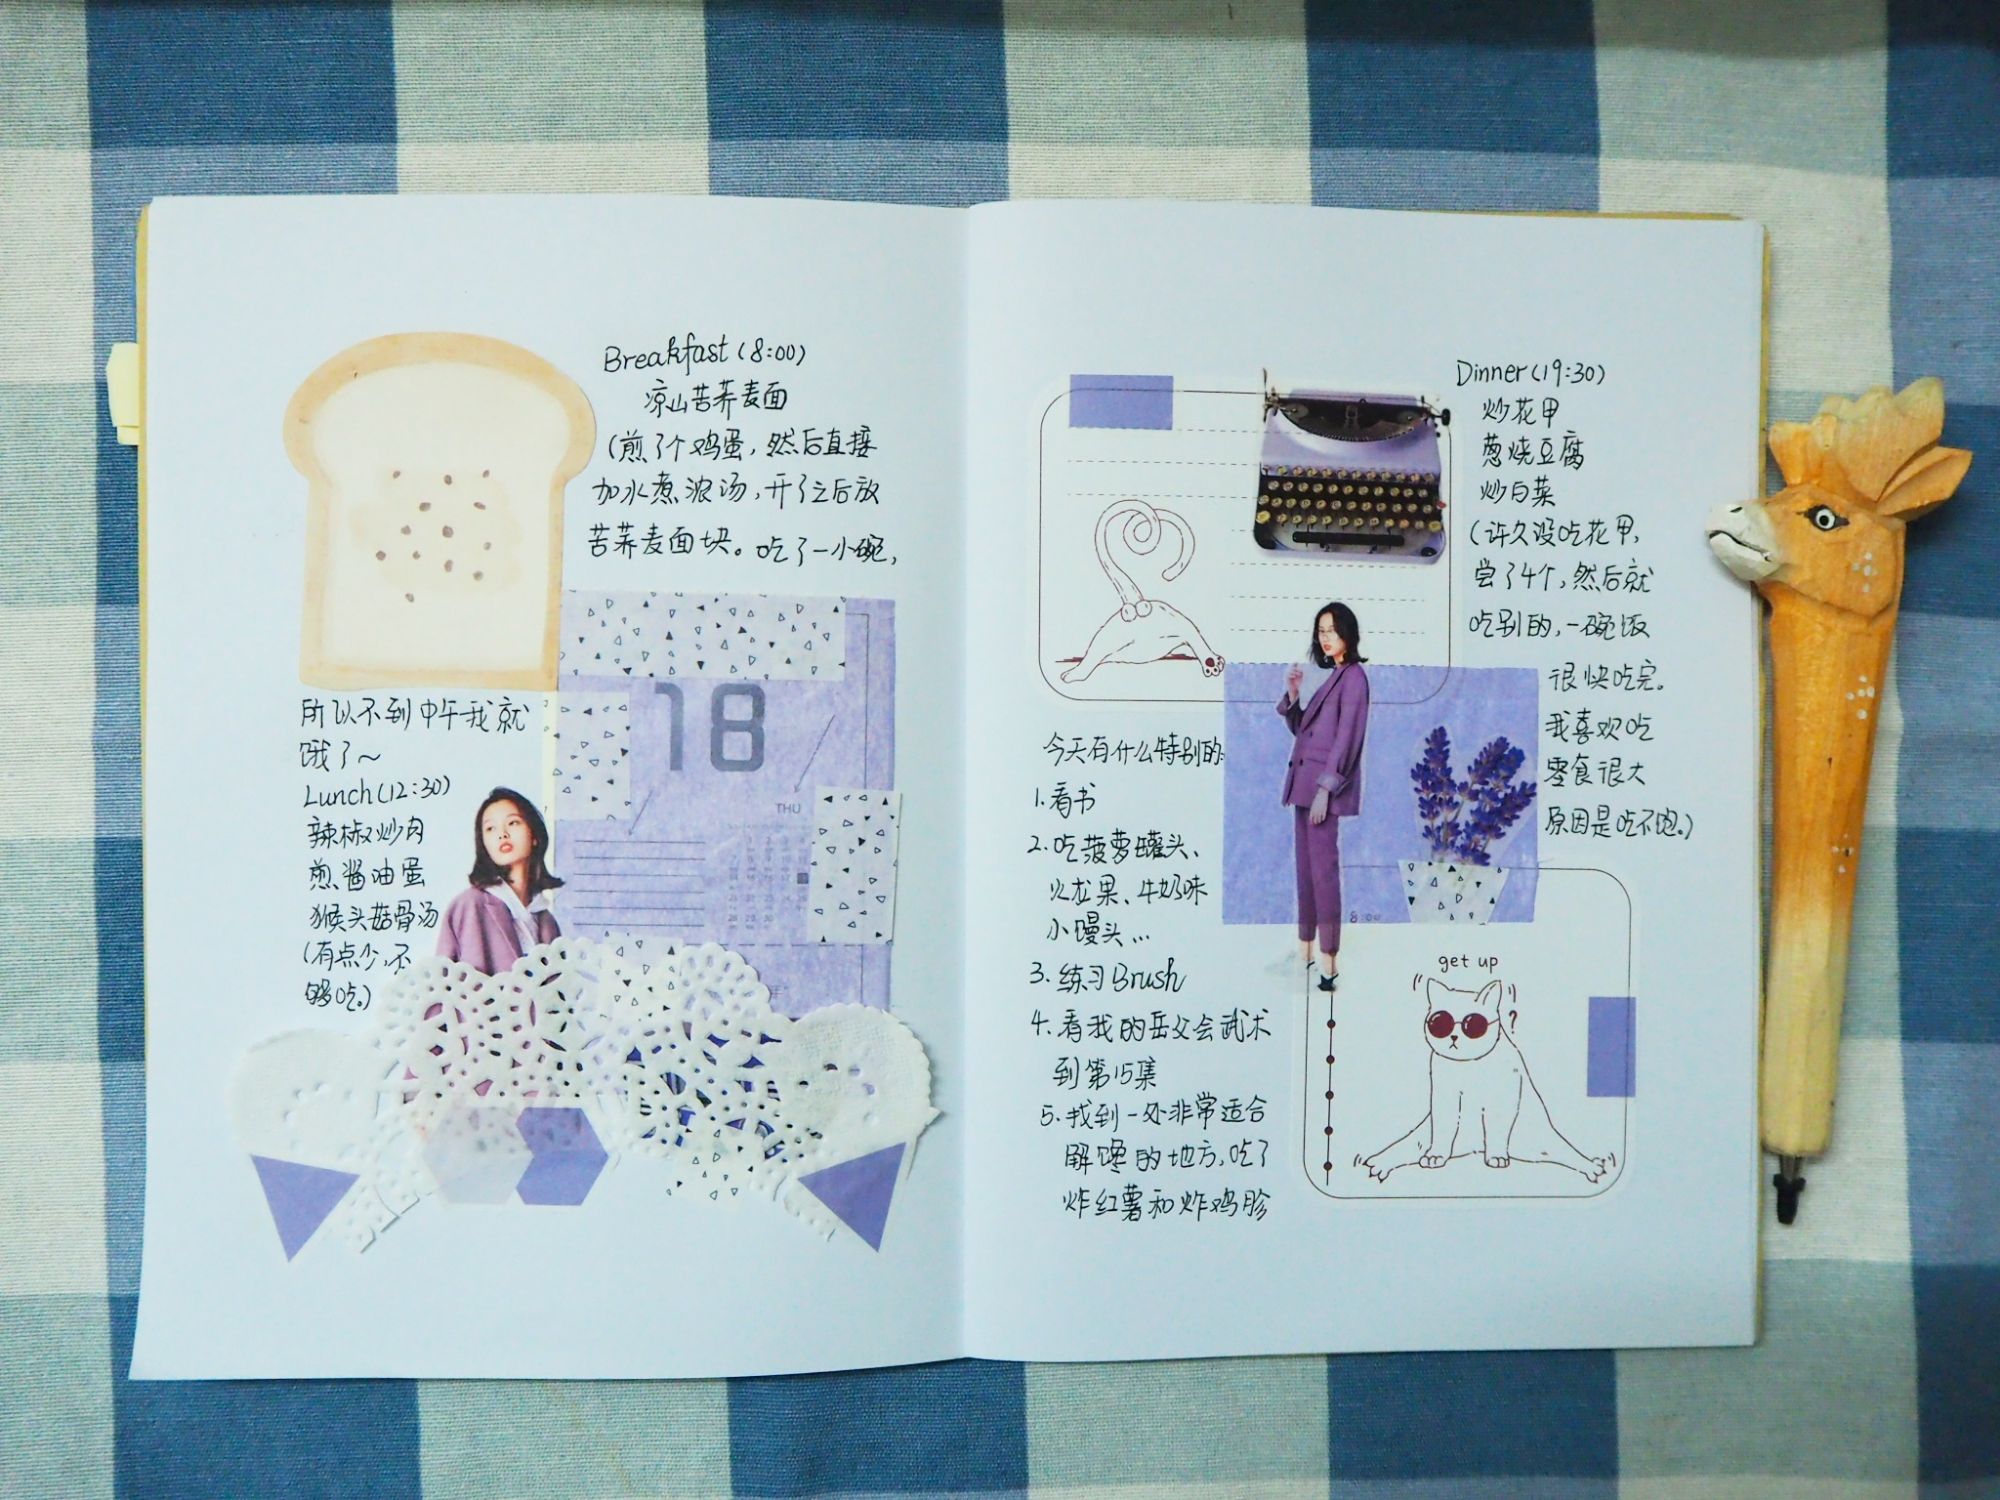 Breakfast(8:00)
凉山苦荞麦面
(煎了个鸡蛋,然后直接
加水煮浓汤,开了之后放
苦荞麦面块。吃了一小碗,
所以不到中午我就
饿了~
Lunch(12:30)
辣椒炒肉
煎酱油蛋
猴头菇骨汤
(有点少,不
够吃。)
18
THU
Dinner(19:30)
炒花甲
葱烧豆腐
炒白菜
(许久没吃花甲,
尝了4个,然后就
吃别的,一碗饭
很快吃完。
我喜欢吃
零食很大
原因是吃不饱。)
今天有什么特别的:
1.看书
2.吃菠萝罐头、
火龙果、牛奶味
小馒头...
3.练习Brush
4.看我的岳父会武术
到第15集
5.找到一处非常适合
解馋的地方,吃了
炸红薯和炸鸡胗
8:00
get up
?